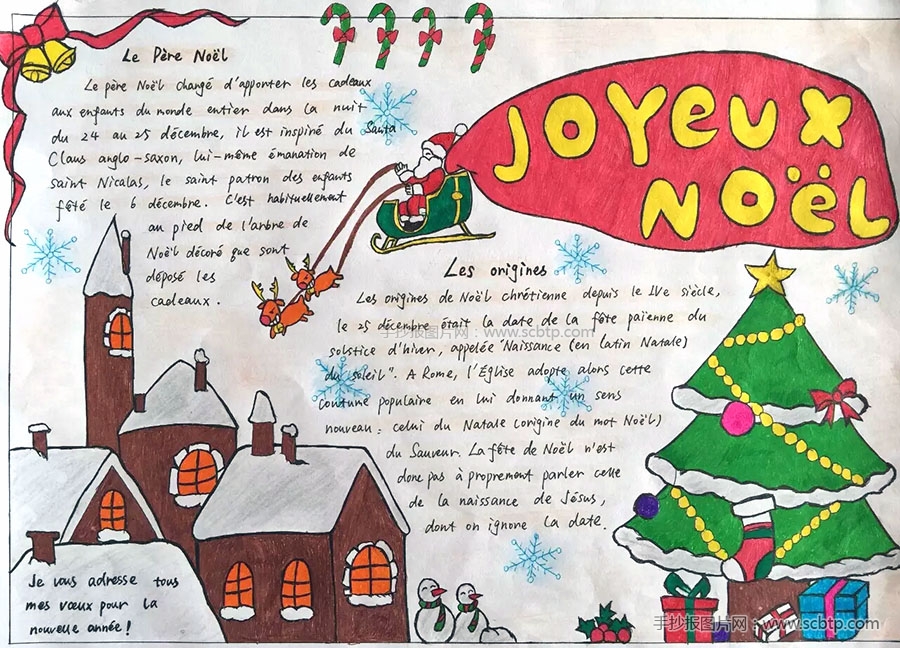 Le Père Noël
Le père Noël changé d'apponter les cadeaux
aux enfants du monde entier dans la nuit
du 24 au 25 décembre, il est inspiré du Santa
Claus anglo-saxon, lui-même émanation de
saint Nicalas, le saint patron des enfants
fêté le 6 décembre. C'est habituellement
au pied de l'arbre de
Noël décoré que sont
déposé les
cadeaux.
JOYEUX
NOËL
Les origines
Les origines de Noël chrétienne depuis le IVe siècle,
le 25 décembre était la date de la fête païenne du
solstice d'hiver, appelée "Naissance (en latin Natale)
du soleil". A Rome, l'Église adopte alors cette
coutume populaire en lui donnant un sens
nouveau: celui du Natale (origine du mot Noël)
du Sauveur. La fête de Noël n'est
donc pas à proprement parler celle
de la naissance de Jésus,
dont on ignore la date.
Je vous adresse tous
mes vœux pour la
nouvelle année!
手抄报图片网:www.scbtp.com
手抄报图片网:www.scbtp.com